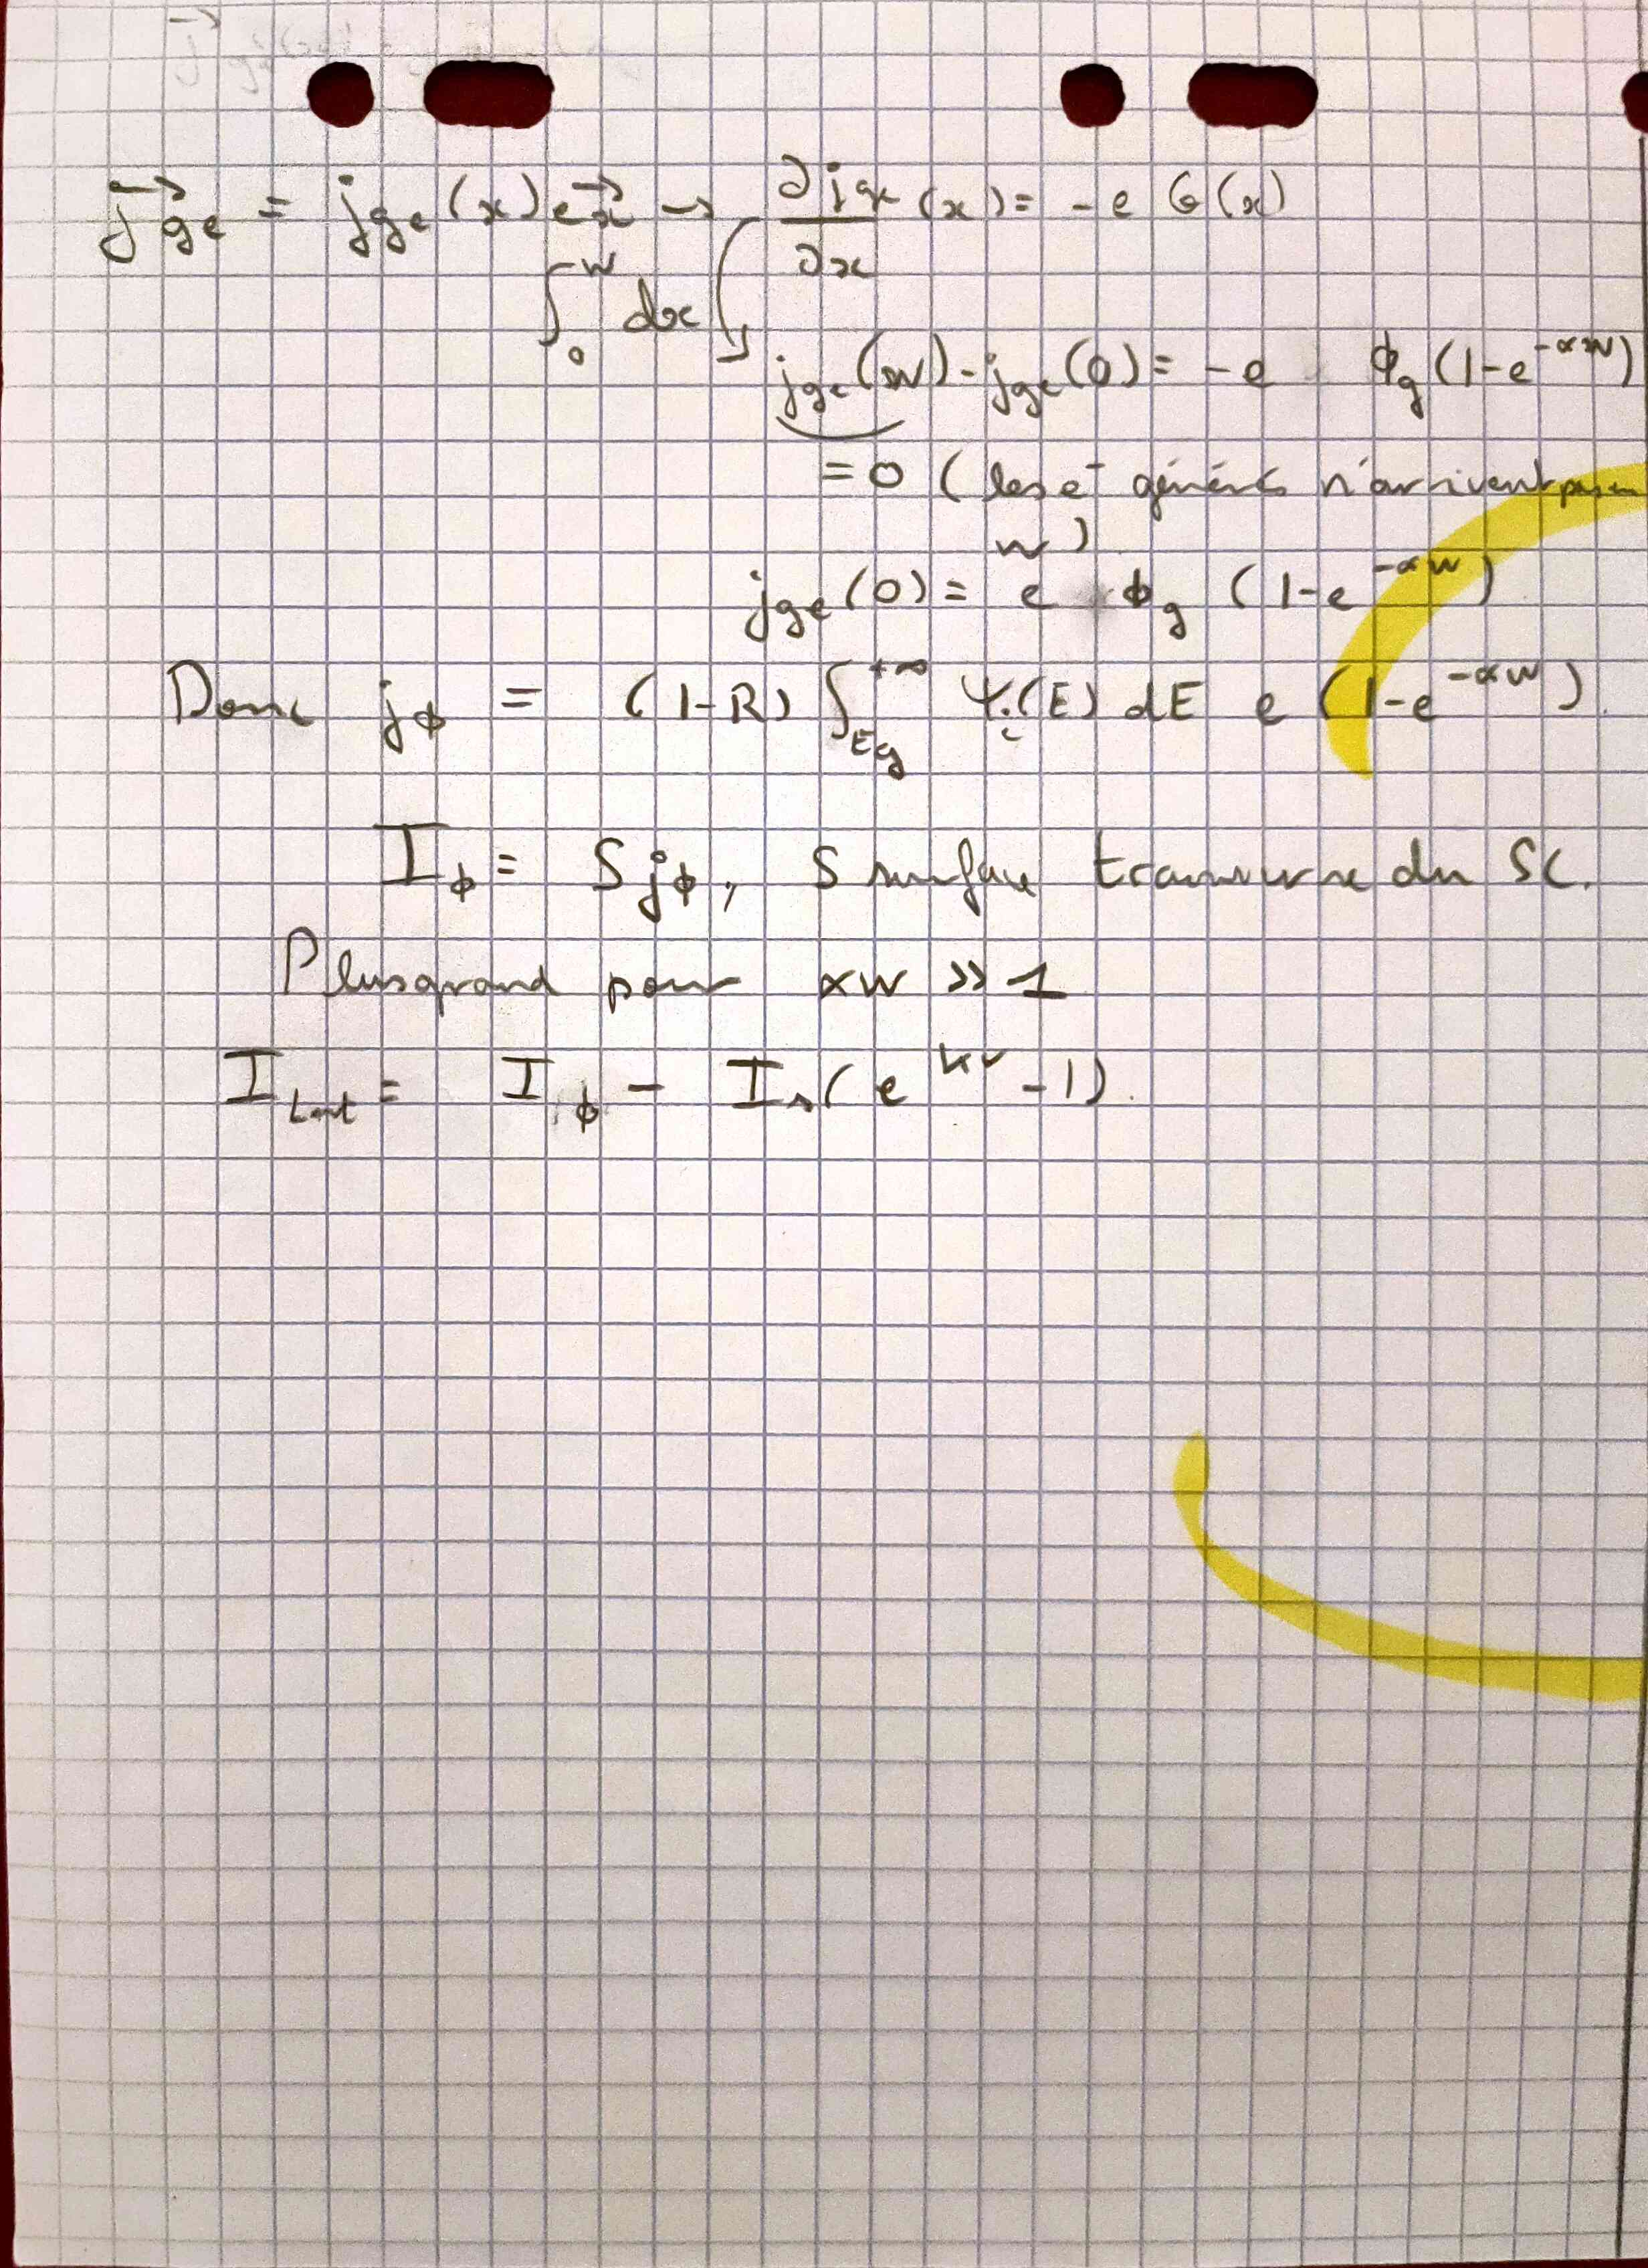 j⃗ge = jge(x) e⃗x → ∂jge/∂x (x) = -e G(x)
∫₀ᵂ dx
jge(W) - jge(0) = -e ϕg (1-e^-αW)
= 0 (les e⁻ générés n'arrivent pas en
W)
jge(0) = e ϕg (1-e^-αW)
Donc jϕ = (1-R) ∫_Eg^+∞ Ψi(E) dE e (1-e^-αW).
Iϕ = S jϕ, S surface transverse du SC.
Plus grand pour αW >> 1
Itot = Iϕ - Is(e^KV - 1).